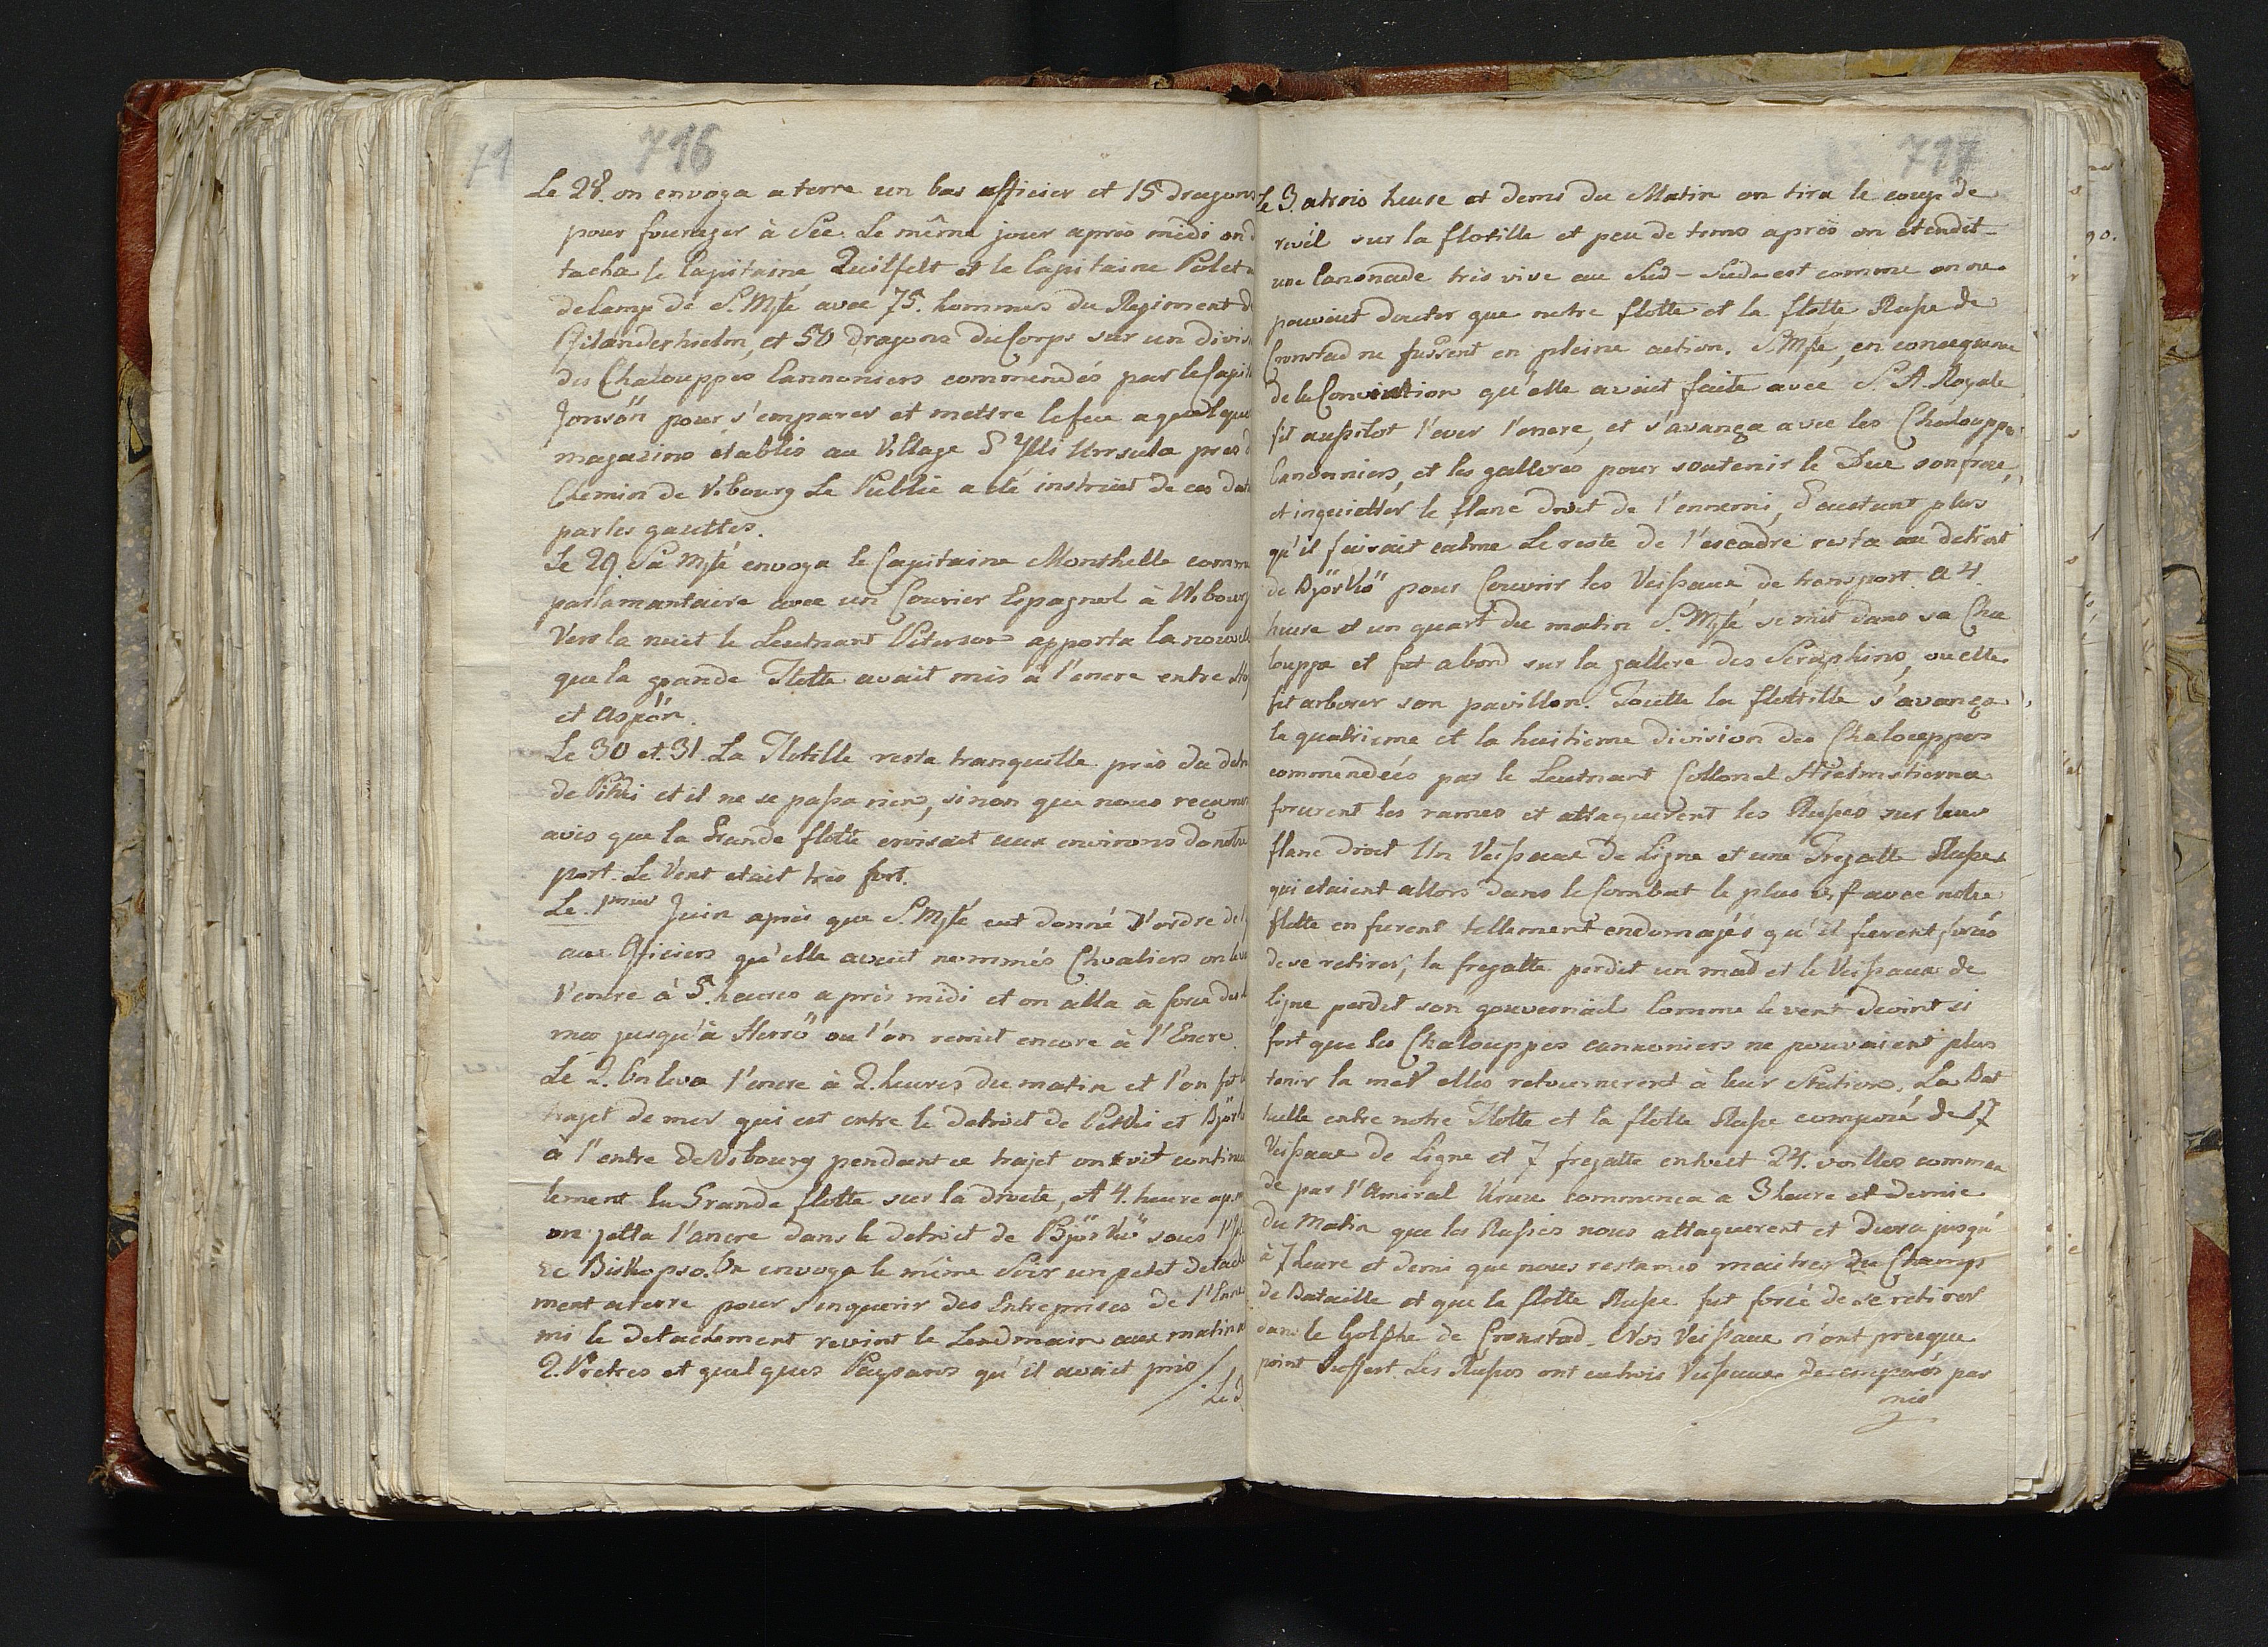 716
Le 28. on envoya a terre un bas officier et 15 dragons
pour fourager à See. Le même jour après midi on d
tacha le Capitaine Quilfelt et le Capitaine Polet a
de Camp de S. Mté avec 75. hommes du Regiment d
Gilanderhielm, et 50 dragons du Corps sur un divis
des Chalouppes Cannoniers commendés par le Capit
Jonsön pour s'emparer et mettre le feu a quelque
magazins établis au Village d'Ylli Urrsula pres d
Chemin de Vibourg Le Public a été instruit de ces
par les gazettes.
Le 29. Sa Mté envoya le Capitaine Monthelle comm
parlamantaire avec un Courier Espagnol à Wibourg
Vers la nuit le Leutnant Peterson apporta la nouvell
que la grande Flotte avait mis à l'encre entre Ho
et Aspön.
Le 30 et 31. La Flotille resta tranquille près du detr
de Pitki et il ne se passa rien, sinon que nous reçumes
avis que la Grande flotte croisait aux environs de notre
port. Le Vent etait tres fort.
Le 1mier Juin après que S. Mté eut donné l'ordre de l
aux Oficiers qu'elle avait nommés Chvaliers on leva
l'encre à 5. heures après midi et on alla à force de
mes jusqu'à Herrö ou l'on remit encore à l'Encre.
Le 2. On leva l'encre à 2. heures du matin et l'on fit l
trajet de mer qui est entre le detroit de Pitki et Björk
à l'entre de Vibourg pendant ce trajet on vit continue
lement la Grande flotte sur la droite, et 4. heure apr
on jetta l'ancre dans le detroit de Björkö sous l'
re Biskopso. On envoya le même Soir un petit detache
ment a terre pour s'enquerir des Entreprises de l'Enne
mi le detachement revint le Lendmain au matin a
2. Pretres et quelques Paysans qu'il avait pris
Le 3
717
Le 3. a trois heure et demi du Matin on tira le coup de
revél sur la flotille et peu de tems après on etendit
une Canonade tris vive au Sud-Sudest comme on ne
pouvait douter que notre flotte et la flotte Russe de
Cronstad ne fussent en pleine action. S. Mté, en conceqence
de la Convention qu'elle avait faite avec S. A. Royale
fit aussitot l'ever l'encre, et s'avança avec les Chalouppes
Canonniers, et les galleres pour soutenir le Duc son frere,
et inquietter le flanc droit de l'ennemi, d'austant plus
qu'il faisait calme Le reste de l'escadre resta au detroit
de Björkö pour Couvrir les Veissaux de transport. A 4.
heure et un quart du matin S. Mté se mit dans sa Cha
louppe et fut abord sur la gallere des Seraphins, ou elle
fit arborer son pavillon. Toutte la flottille s'avança
la quatrieme et la huitieme division des Chalouppes
commendéés par le Leutnant Collonel Hielmstierna
forcerent les rames et attaquerent les Russes sur leur
flanc droit Un Veissaux de Ligne et une Fregatte Russe
qui etaient allors dans le Combat le plus vif avec notre
flotte en furent tellement endomajés qu'il furent forcés
de se retirer, la fregatte perdit un mat et le Veissaux de
ligne perdit son gouvernail Comme le vent devint si
fort que les Chalouppes cannoniers ne pouvaient plus
tenir la mer elles retournerent à leur Station. La Bat
taille entre notre Flotte et la flotte Russe composé de 17
Veissaux de Ligne et 7 fregatte en tout 24. voilles commen
dé par l'Amiral Kruse commenca a 3 heure et demie
du Matin que les Russes nous attaquerent et dura jusqu'
à 7 heure et demi que nous restames maitres du Champs
de Bataille et que la flotte Russe fut forcé de se retirer
dans le Golphe de Cronstad. Nos Veissaux n'ont presque
point souffert Les Russes ont eu trois Veissaux desemparés par
mie